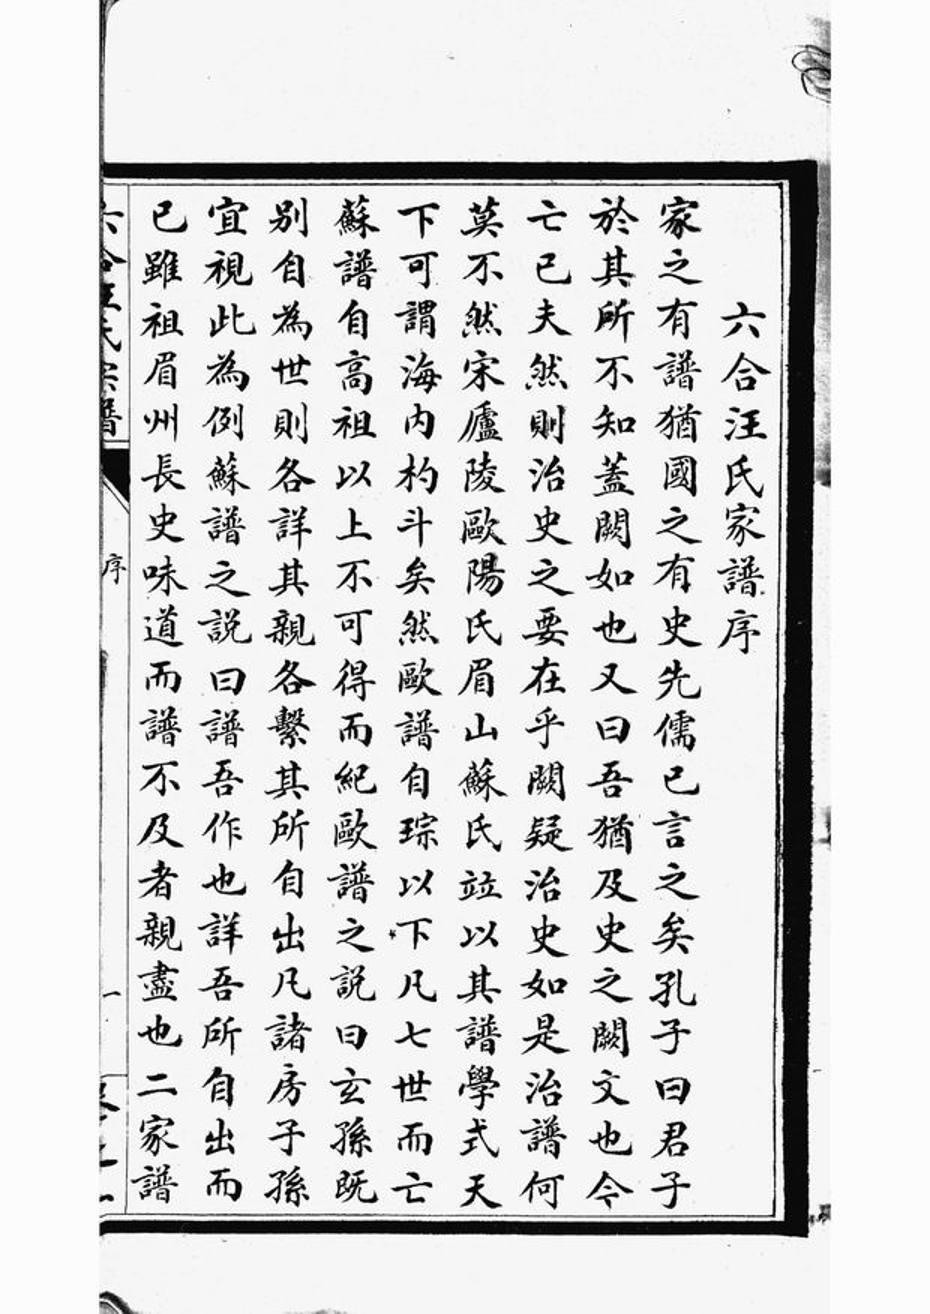 六合汪氏家譜序
家之有譜猶國之有史先儒已言之矣孔子曰君子
於其所不知蓋闕如也又曰吾猶及史之闕文也今
亡已夫然則治史之要在乎闕疑治史如是治譜何
莫不然宋廬陵歐陽氏眉山蘇氏竝以其譜學式天
下可謂海內杓斗矣然歐譜自琮以下凡七世而亡
蘇譜自高祖以上不可得而紀歐譜之説曰玄孫既
别自為世則各詳其親各繫其所自出凡諸房子孫
宜視此為例蘇譜之説曰譜吾作也詳吾所自出而
已雖祖眉州長史味道而譜不及者親盡也二家譜
六合汪氏宗譜
序
一